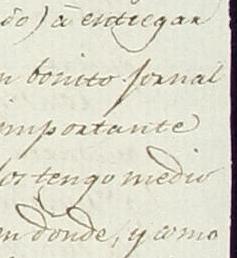 do) á entregar
n bonito jornal
importante
los tengo medio
en donde, y como